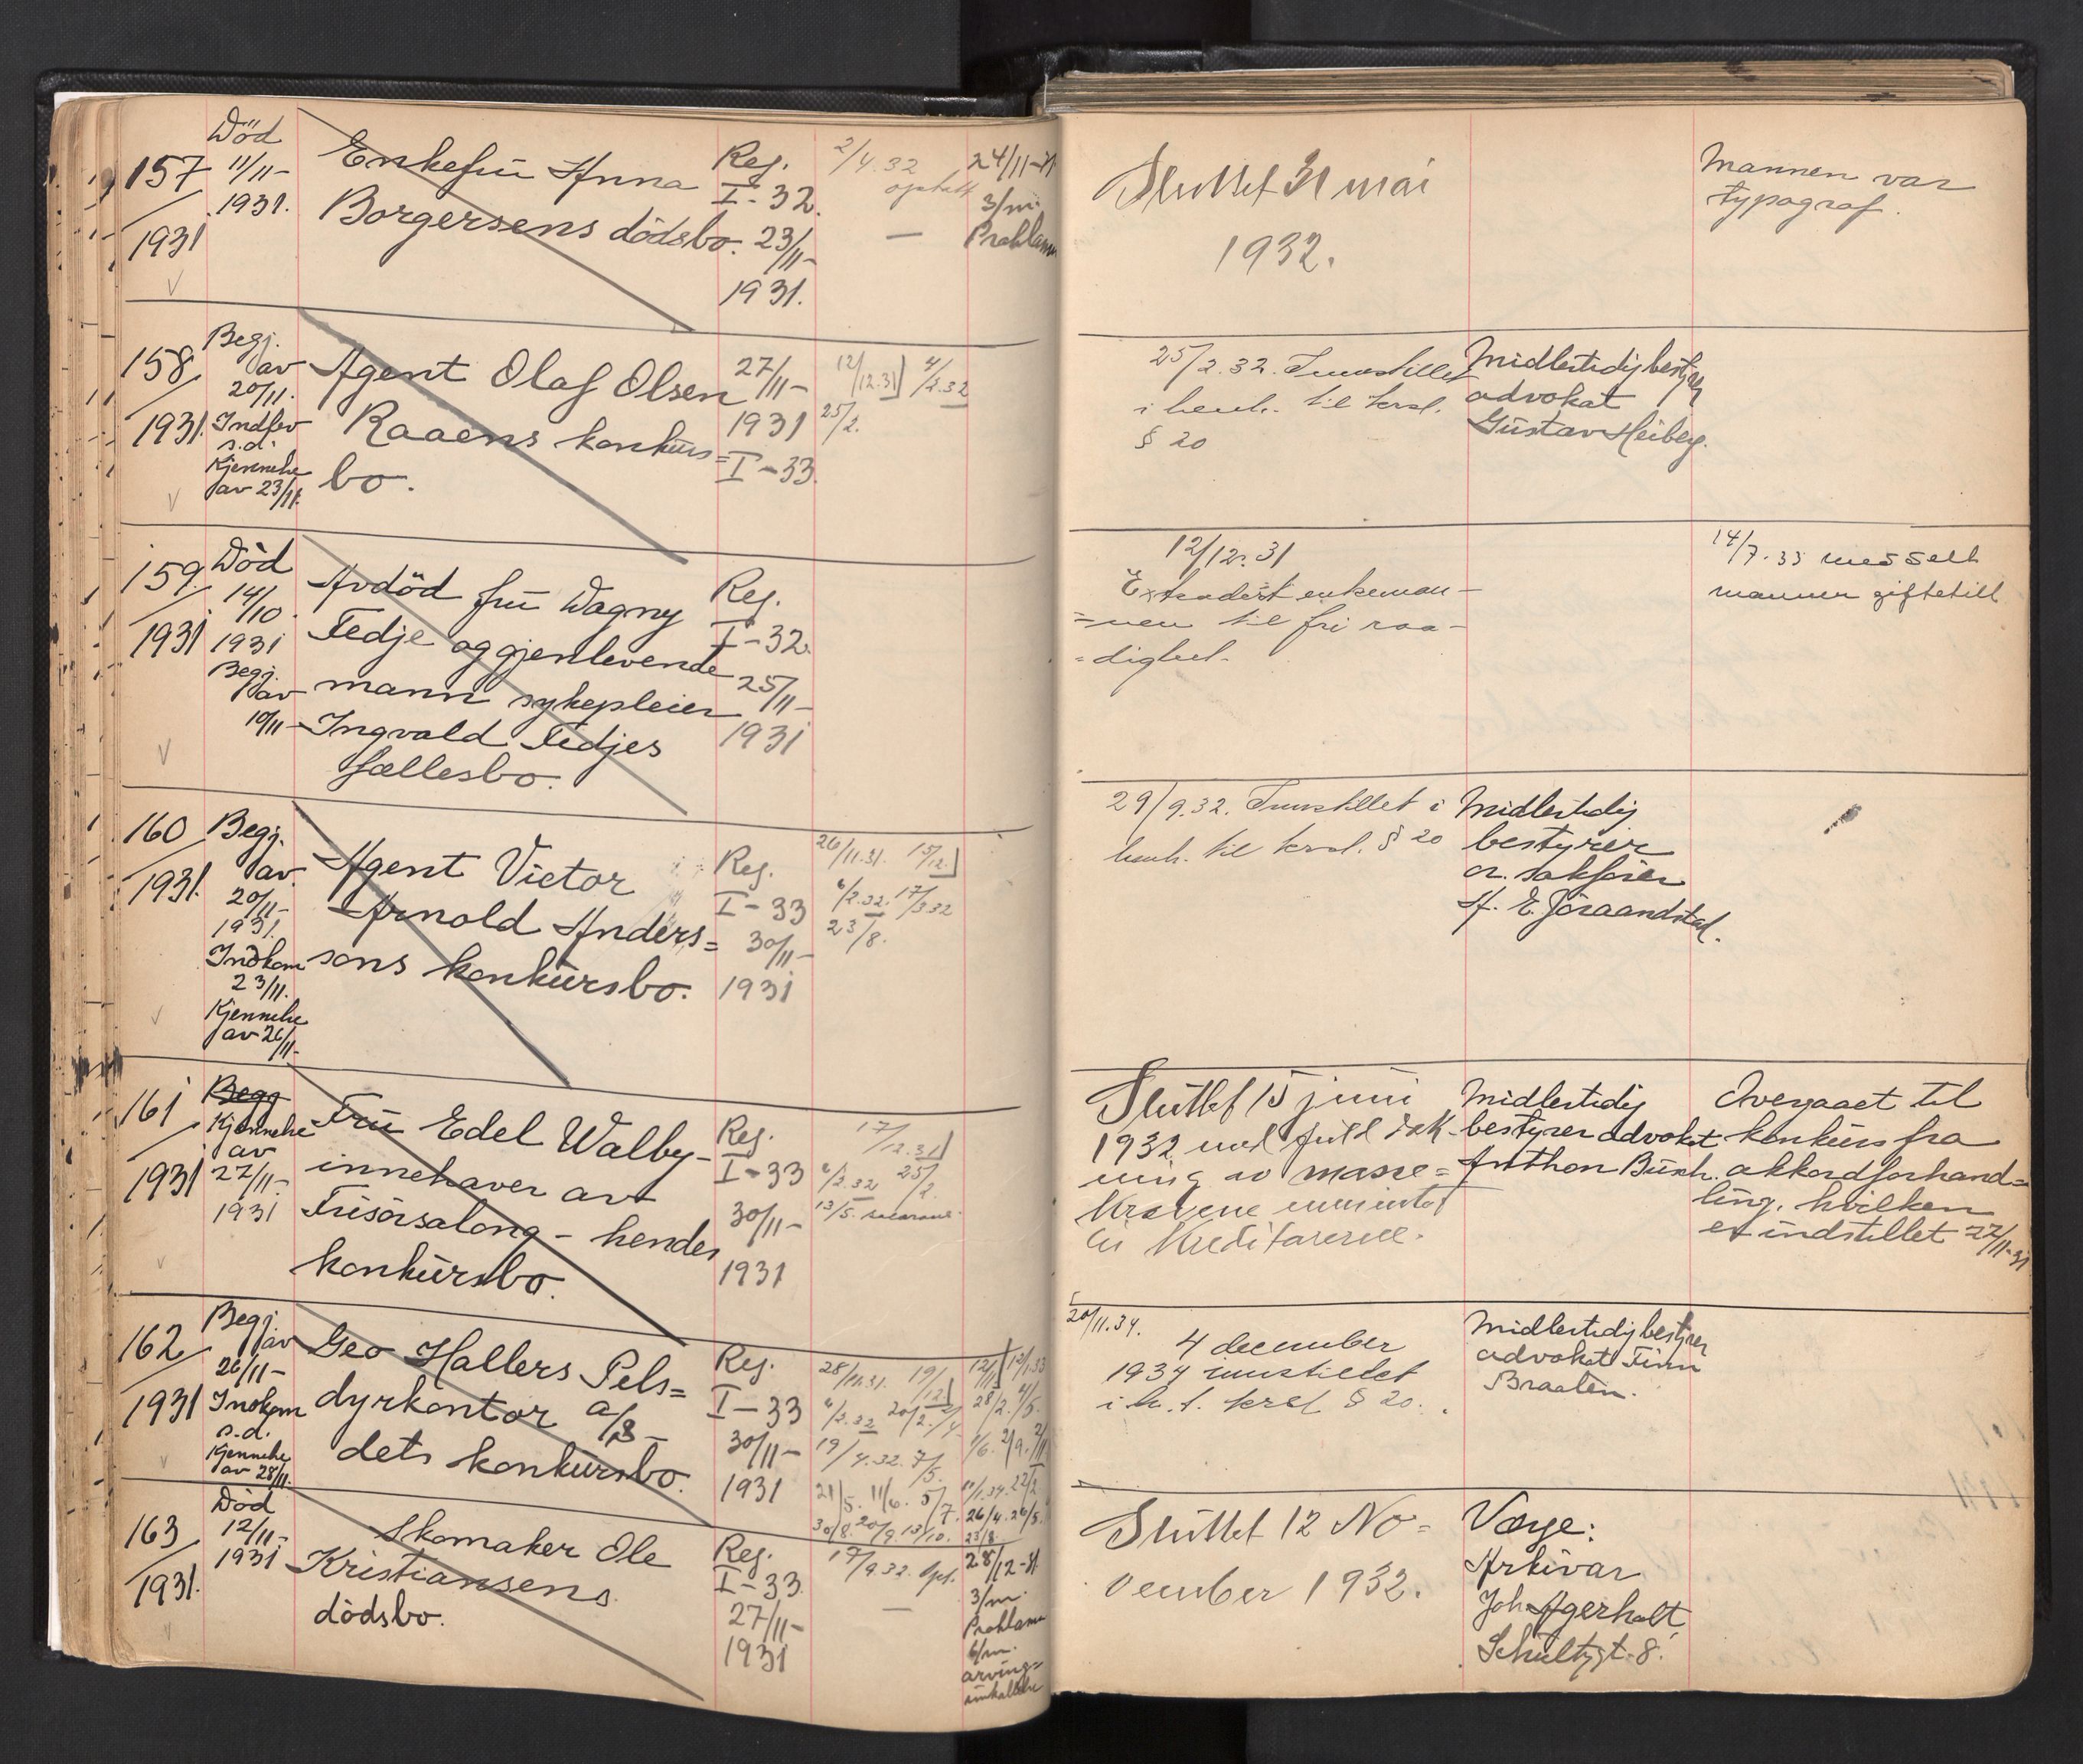 Död
157 11/11- Enkefru Anna Reg. 2/4.32 24/11-31
1931. I-32. opholt 3/m.
1931 Borgersens dödsbo. 23/11- — Proklama
1931.
Sluttet 31 mai
1932.
Mannen var
typograf.
158 Begj.
av Agent Olaf Olsen 27/11- 12/12.31] 4/2.32
20/11.
1931. Indlev Raaens konkurs= 1931 25/2.
s.d. I-33.
Kjennelse bo.
av 23/11.
25/2.32. Innstillet
i henh. til krsl.
§ 20
Midlertidig bestyrer
advokat
Gustav Heiberg.
159 Död
14/10 Avdöd fru Dagny Reg.
1931 1931 Fedje og gjenlevende I-32.
Begj.
av mann sykepleier 25/11-
10/11- Ingvald Fedjes 1931
fællesbo.
12/12.31
Extradert enkeman-
=nen til fri raa-
=dighet.
14/7.33 ues selt
mannen giftetill.
160 Begj.
1931. av Agent Victor Reg. 26/11.31. 15/12.]
20/11- Arnold Anders= I-33 6/2.32. 17/3.32
1931. 30/11- 23/8.
Indkom sons konkursbo. 1931
23/11.
Kjennelse
av 26/11-
29/9.32. Innstillet i
henh. til krsl. § 20
Midlertidig
bestyrer
o.r.sakfører
A. E. Jöraandstad.
161 Begj
Kjennelse Fru Edel Walby- Reg. 17/12.31]
av innehaver av I-33 6/2.32 25/2.
1931 27/11- 13/5.
1931 Frisörsalong - hendes 30/11-
konkursbo. 1931
Sluttet 15 juni
1932 med full dæk-
ning av masse=
kravene
til Kreditorerne.
Midlertidig
bestyrer advokat
Anthon Busch.
Overgaaet til
konkurs fra
akkordforhand=
ling, hvilken
er indstillet 27/11-31
162 Begj.
av Geo Hallers Pels= Reg. 28/11.31. 19/12] 12/1.33
26/11-
1931 Indkom dyrkontor a/s- I-33 6/2.32 20/2. 28/2. 4/5.
s.d. 30/11- 19/4.32. 7/5. 1/6. 2/9.
Kjennelse dets konkursbo. 1931 21/5. 11/6. 5/7. 22/2
av 28/11. 30/8. 20/9. 13/10. 26/4. 26/5.
23/8.
20/11.34.
4 december
1934 innstillet
i h. t. krsl § 20.
Midlertidig bestyrer
advokat Finn
Braaten.
163 Död
12/11- Skomaker Ole Reg. 17/9.32. Oph. 28/12-31
1931 Kristiansens I-33. 3/m.
1931. dödsbo. 27/11- — Proklama
1931 6/m.
arving=
innkallelse
Sluttet 12 No=
vember 1932.
Verge:
Arkivar
Joh. Agerholt
Schultzgt. 8.